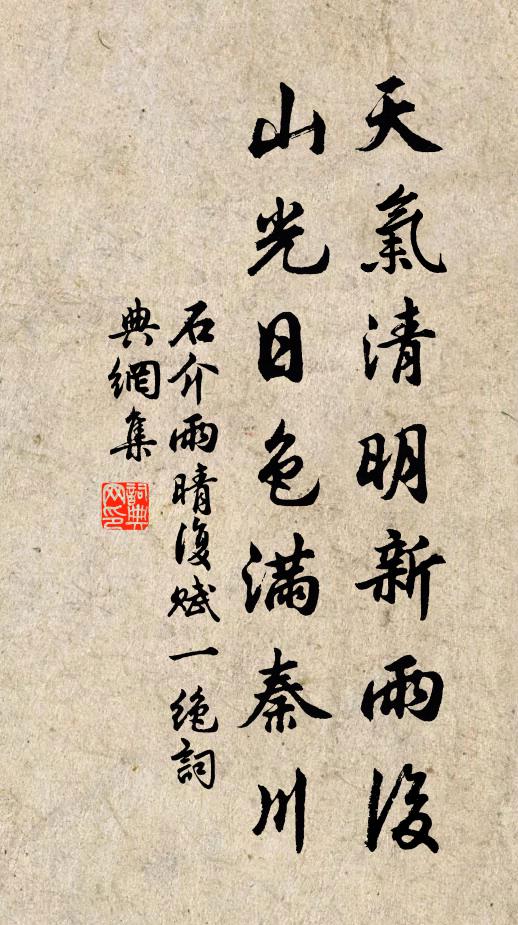 天氣清明新雨後
山光日色滿秦川
石介雨晴復賦一絶詞
典網集
詞典網印